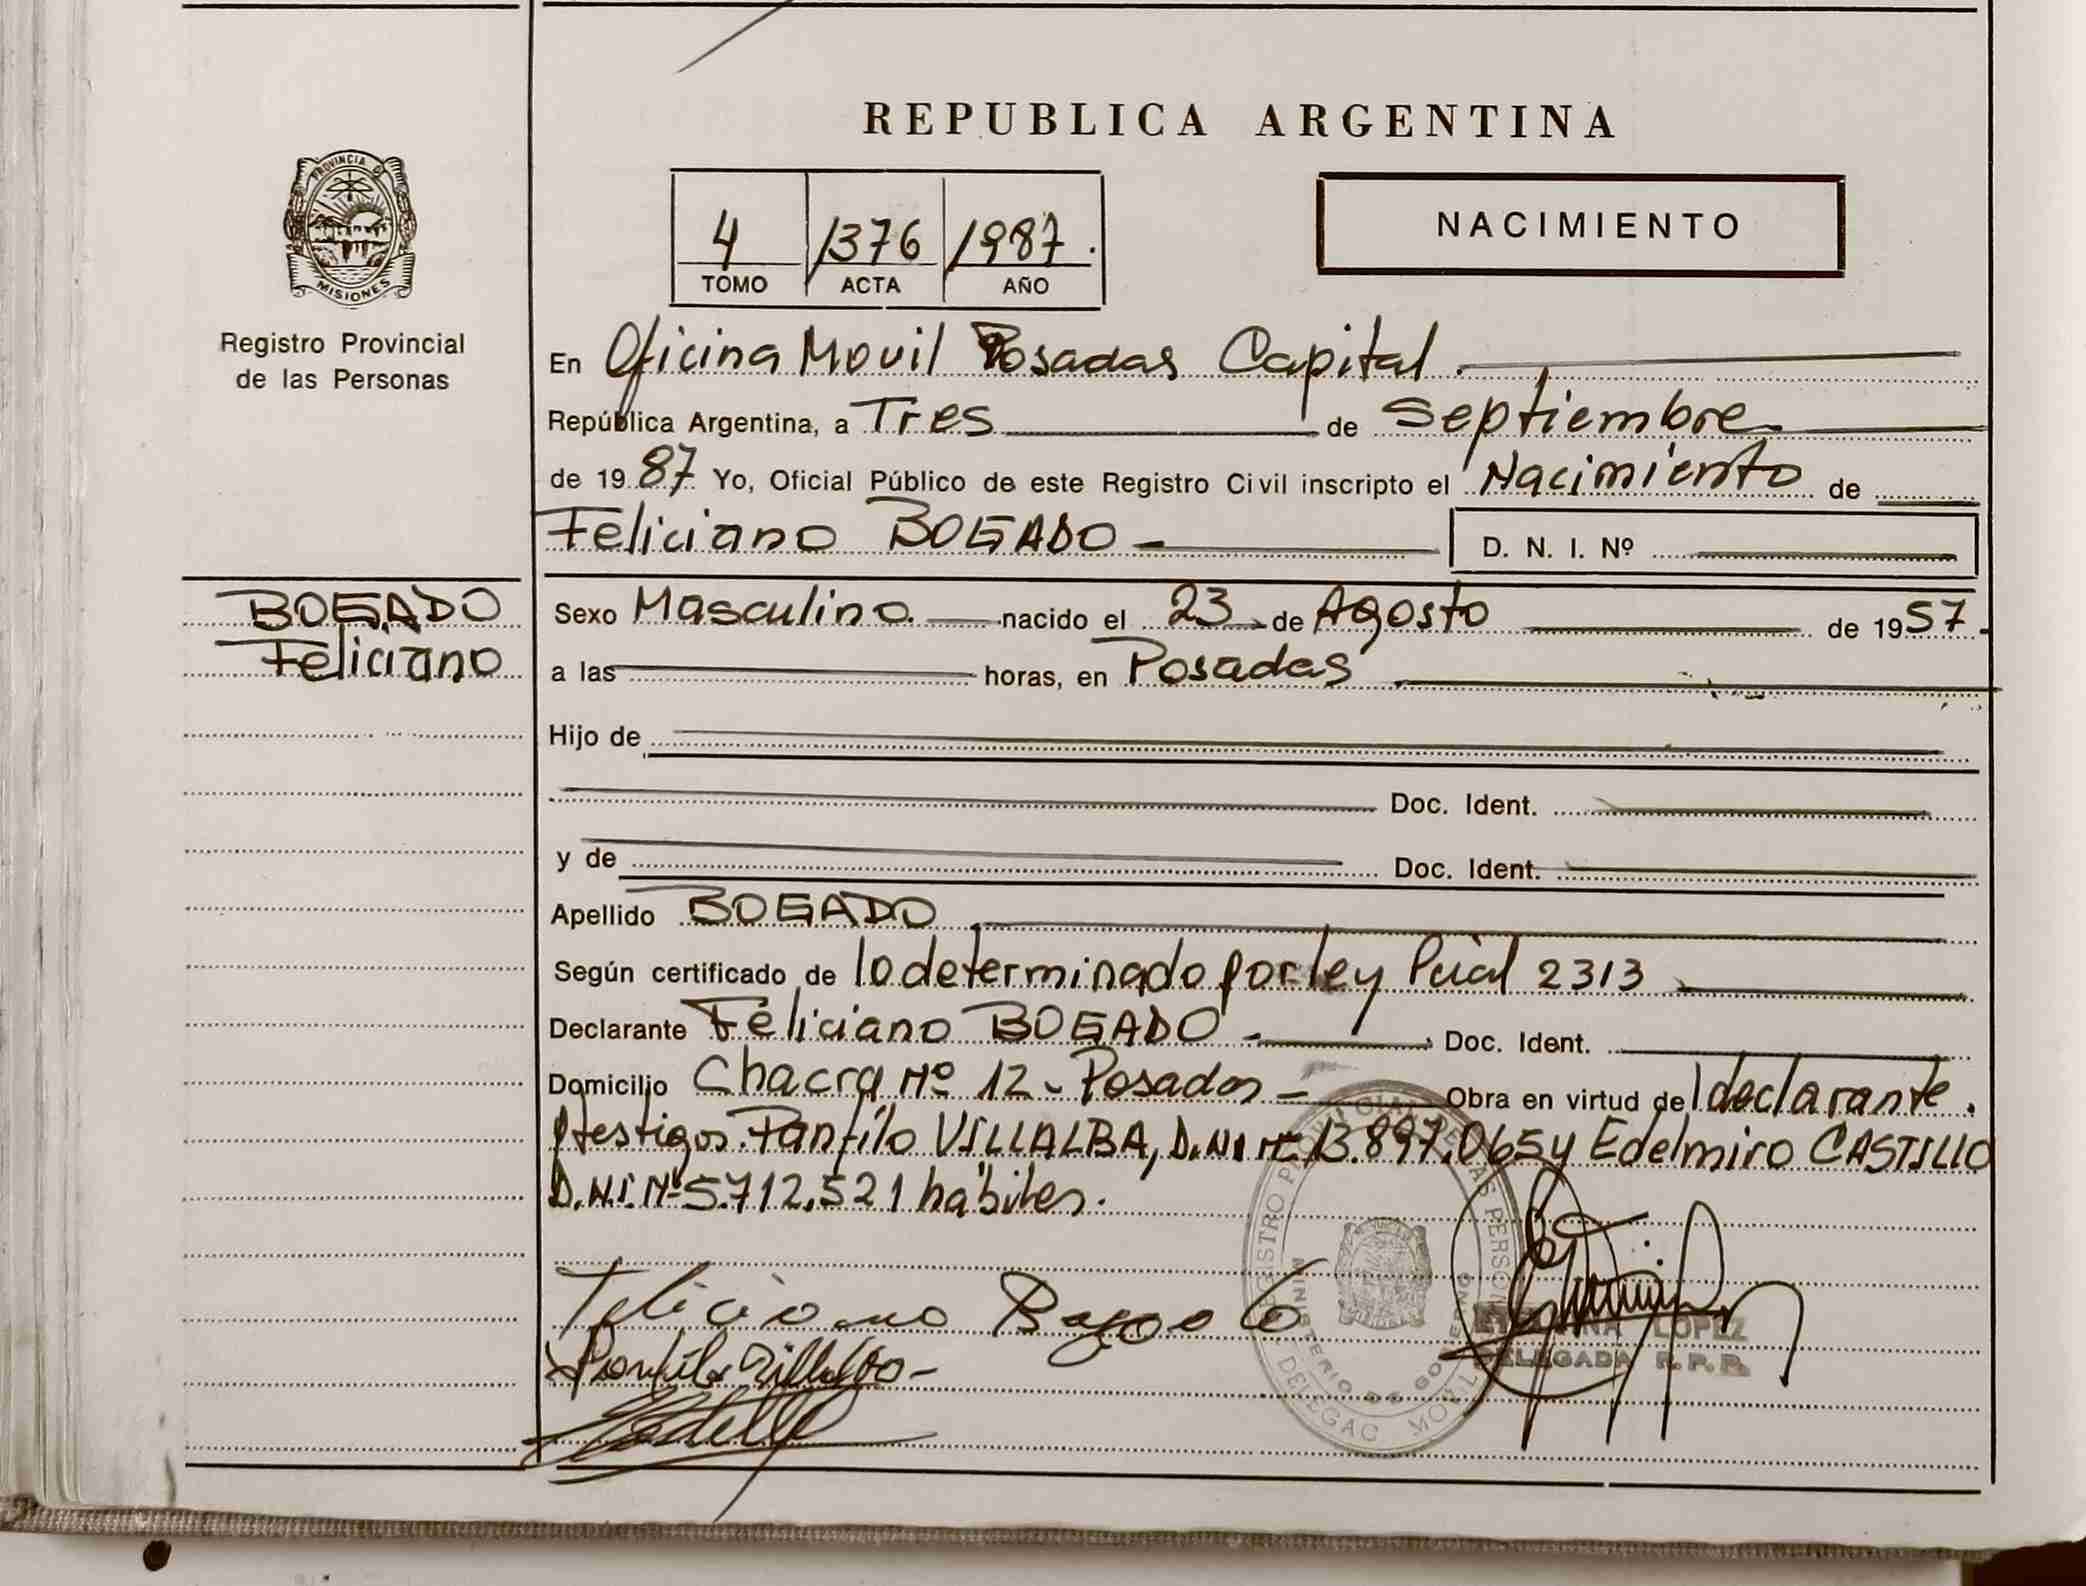 REPUBLICA ARGENTINA
PROVINCIA D
MISIONES
Registro Provincial
de las Personas
4 1376 1987.
TOMO ACTA AÑO
NACIMIENTO
En Oficina Movil Posadas Capital.
República Argentina, a Tres de Septiembre
de 1987 Yo, Oficial Público de este Registro Civil inscripto el Nacimiento de
Feliciano BOGADO D. N. I. Nº
BOGADO
Feliciano
Sexo Masculino. nacido el 23 de Agosto de 1957.
a las horas, en Posadas
Hijo de
Doc. Ident.
y de Doc. Ident.
Apellido BOGADO
Según certificado de lo determinado por ley Pcial 2313
Declarante Feliciano BOGADO Doc. Ident.
Domicilio Chacra Nº 12 - Posadas - Obra en virtud de l declarante.
Ptestigos. Panfilo VILLALBA, D.N.I Nº 13.897.065 y Edelmiro CASTILLO
D.N.I. Nº 5.712.521 hábiles.
Feliciano Bogado
Panfilo Villalba -
Castillo
LOPEZ
DELEGADA R.P.P.
MINISTERIO DE GOBIERNO